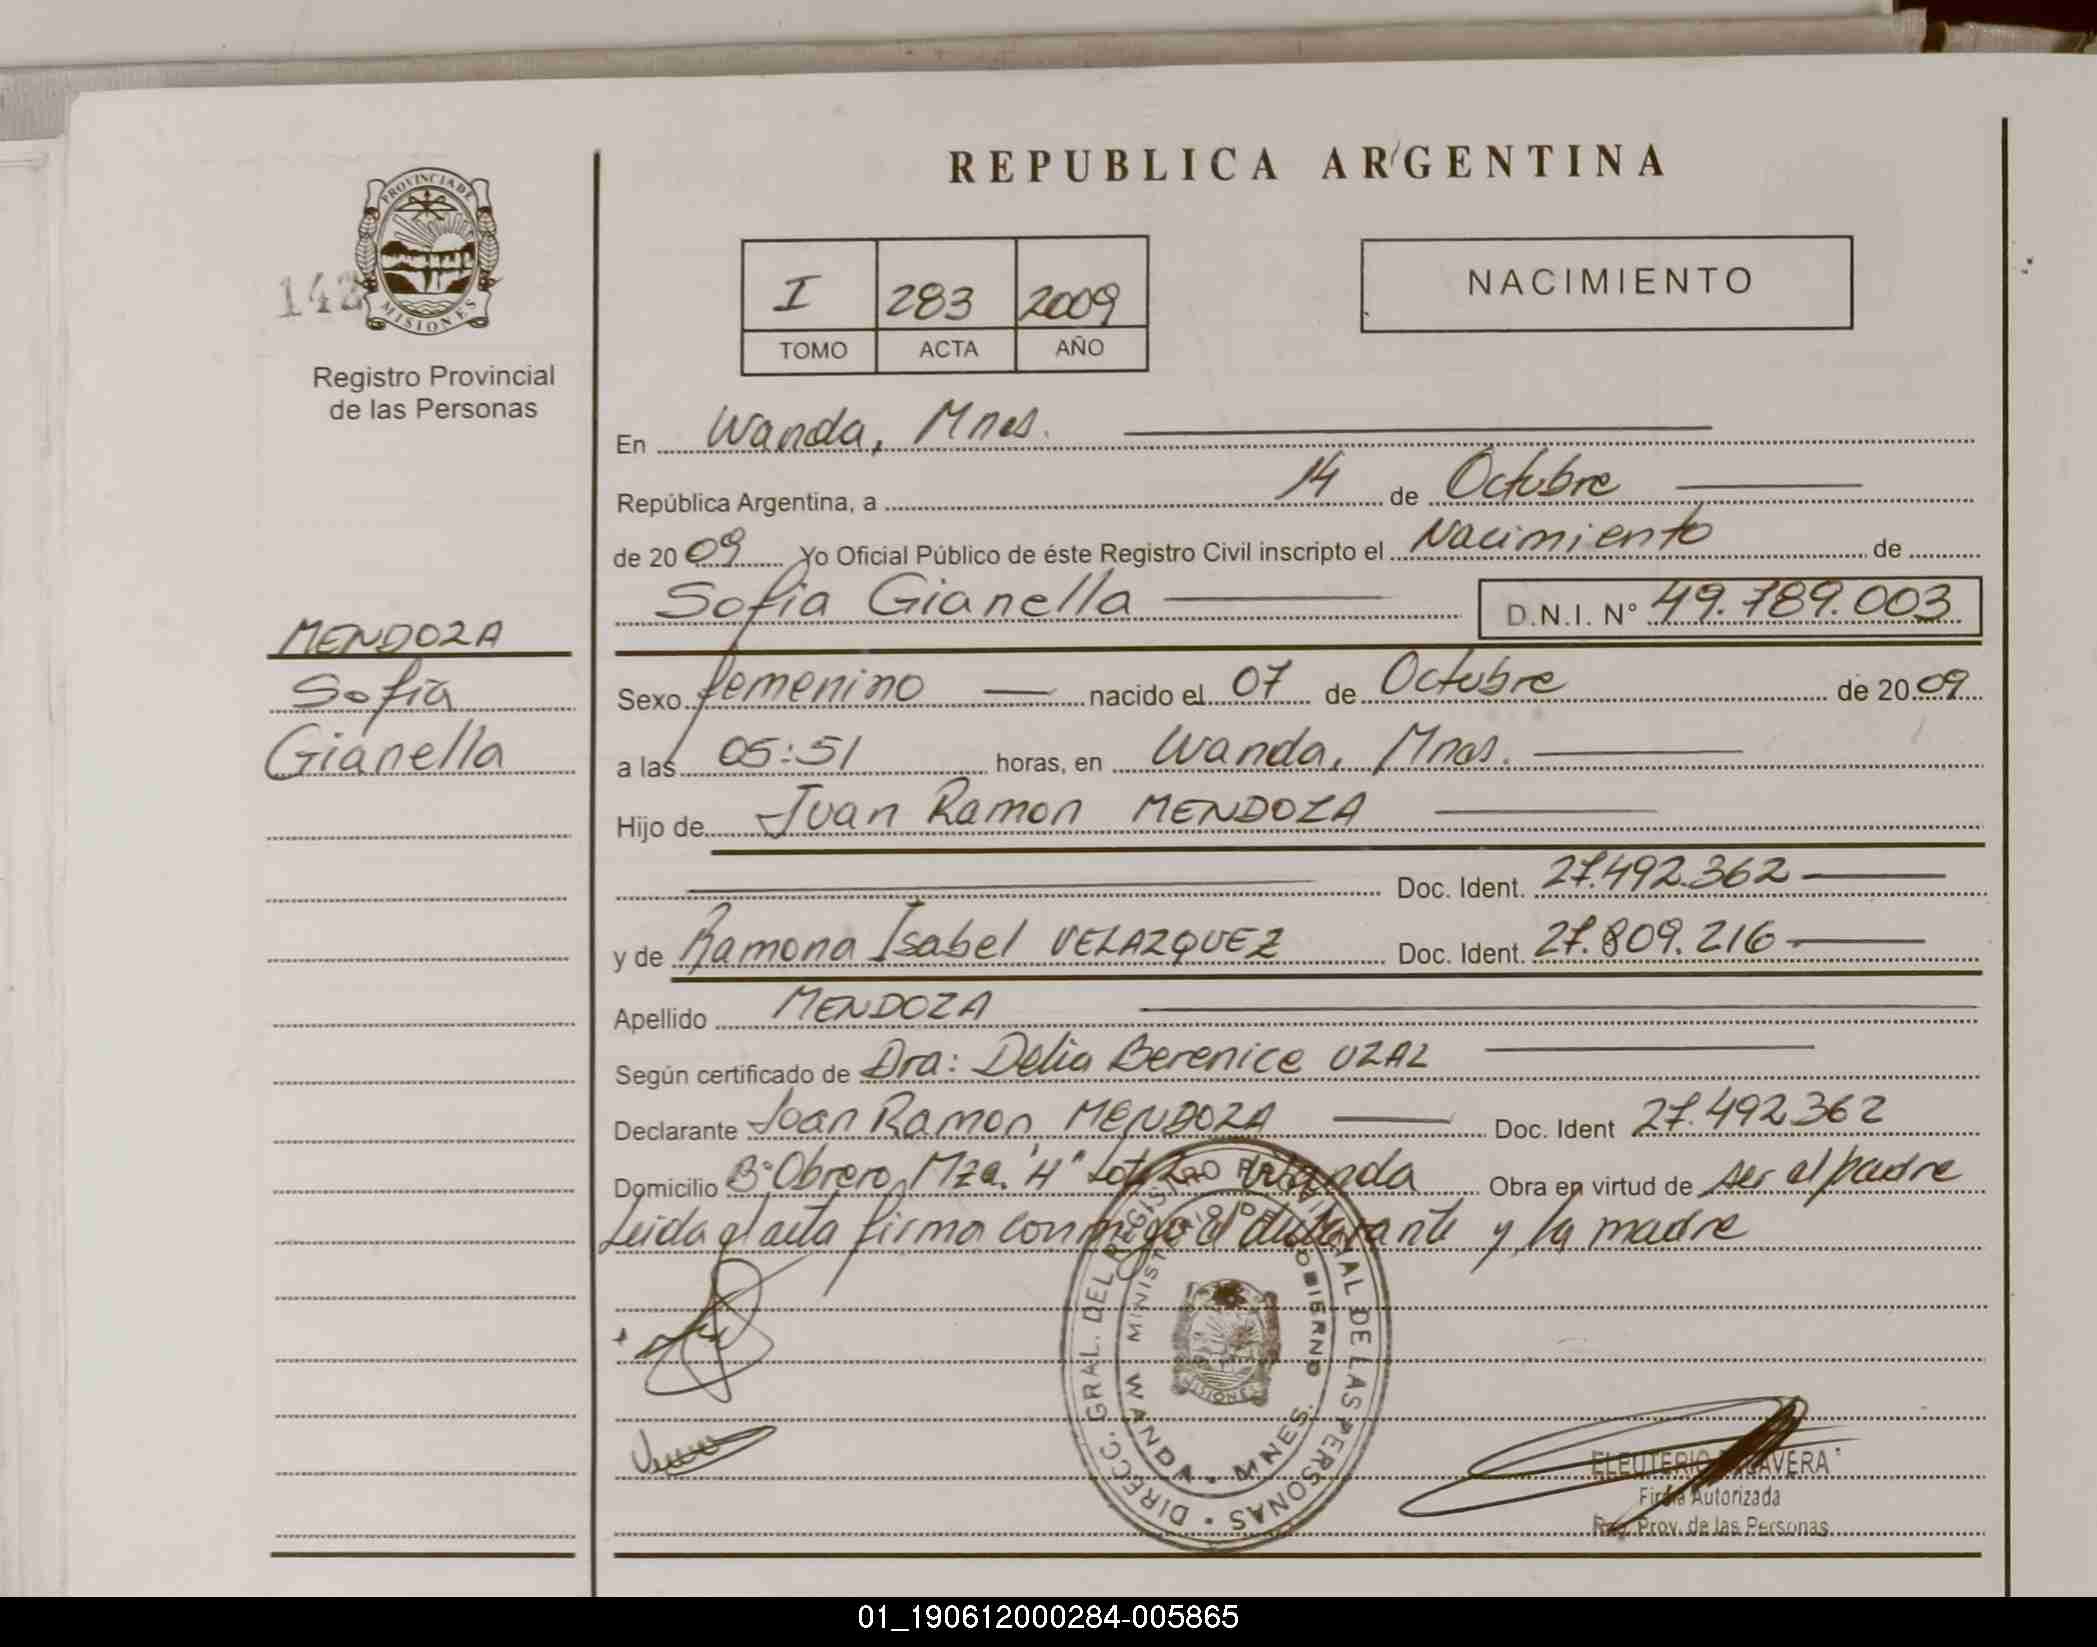 REPUBLICA ARGENTINA
PROVINCIA DE
MISIONES
142
Registro Provincial
de las Personas
I 283 2009
TOMO ACTA AÑO
NACIMIENTO
En Wanda, Mnes.
República Argentina, a 14 de Octubre
de 2009 Yo Oficial Público de éste Registro Civil inscripto el Nacimiento de
Sofia Gianella D.N.I. N° 49.789.003
MENDOZA
Sofia
Gianella
Sexo femenino nacido el 07 de Octubre de 2009
a las 05:51 horas, en Wanda, Mnes.
Hijo de Juan Ramon MENDOZA
Doc. Ident. 27.492.362
y de Ramona Isabel VELAZQUEZ Doc. Ident. 27.809.216
Apellido MENDOZA
Según certificado de Dra: Delia Berenice UZAL
Declarante Juan Ramon MENDOZA Doc. Ident 27.492.362
Domicilio B° Obrero Mza. "H" Wanda Obra en virtud de ser el padre
Leida el acta firma conmigo el declarante y la madre
DIRECC. GRAL. DEL REGISTRO PROVINCIAL DE LAS PERSONAS
MINISTERIO DE GOBIERNO
WANDA • MNES.
MISIONES
ELEUTERIO
Firma Autorizada
Reg. Prov. de las Personas
01_190612000284-005865